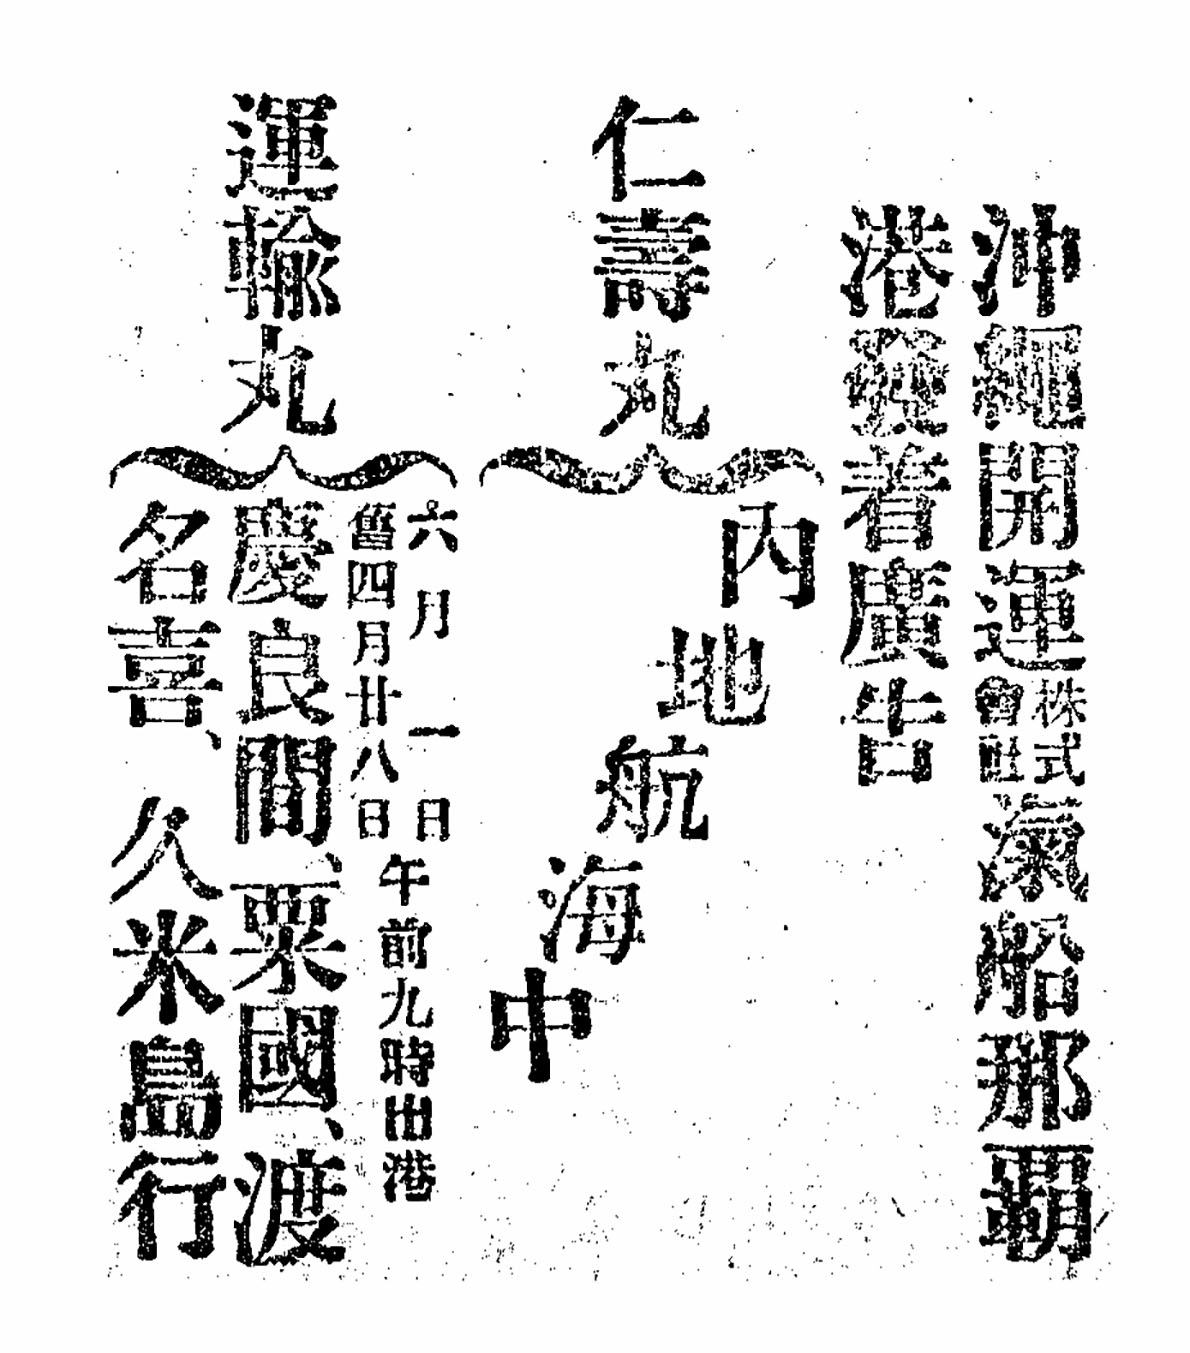 沖縄開運株式會社滊船那覇
港發着廣告
仁壽丸
內地航海中
運輸丸
六月一日
舊四月廿八日
午前九時出港
慶良間、粟國、渡
名喜、久米島行